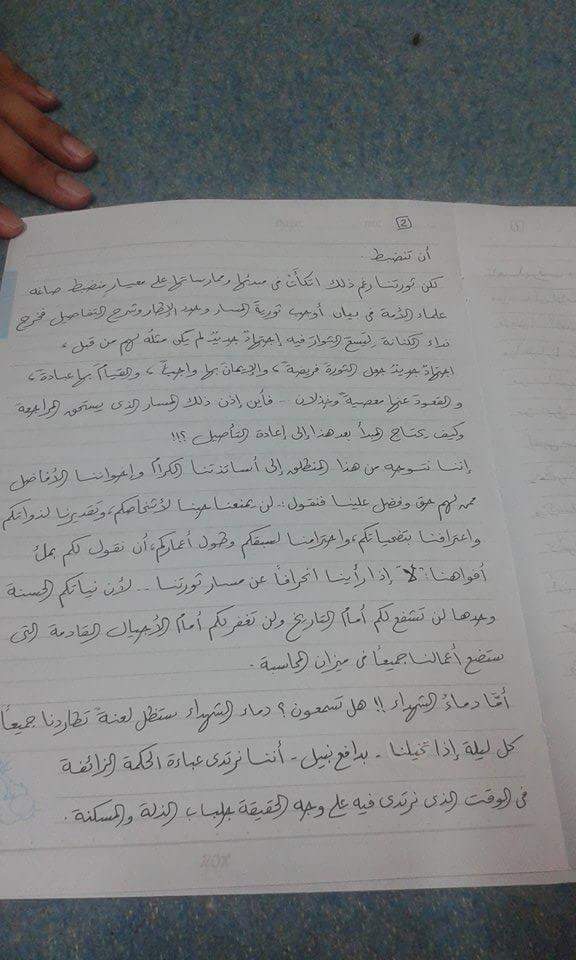 2
أن تنضبط.
لكن ثورتنا رغم ذلك اتكأت فى مبدئها وممارساتها على معيار منضبط صاغه
علماء الأمة فى بيان أوجب ثورية المسار وحدد الإطار وشرح التفاصيل فخرج
نداء الكنانة ليسع الثوار فيه اجتهادٌ جديدٌ لم يكن مثله لهم من قبل،
اجتهادٌ جديدٌ جعل الثورة فريضةً، والإيمان بها واجباً، والقيام بها عبادةً،
والقعود عنها معصيةً وخذلان .. فأين إذن ذلك المسار الذى يستحق المراجعة
وكيف يحتاج المبدأ بعد هذا إلى إعادة التأصيل ؟!!
إننا نتوجه من هذا المنطلق إلى أساتذتنا الكرام وإخواننا الأفاضل
ممن لهم حق وفضل علينا فنقول:. لن يمنعنا حبنا لأشخاصكم، وتقديرنا لذواتكم
واعترافنا بتضحياتكم، واحترامنا لسبقكم وطول أعماركم، أن نقول لكم بملء
أفواهنا: "لا" إذا رأينا انحرافاً عن مسار ثورتنا .. لأن نياتكم الحسنة
وحدها لن تشفع لكم أمام التاريخ ولن تغفر لكم أمام الأجيال القادمة التى
ستضع أعمالنا جميعاً فى ميزان المحاسبة.
أمَّا دماءُ الشهداء !! هل تسمعون ؟ دماء الشهداء ستظل لعنةً تطاردنا جميعاً
كل ليلة إذا تخيلنا - بدافع نبيل - أننا نرتدى عباءة الحكمة الزائفة
فى الوقت الذى نرتدى فيه على وجه الحقيقة جلباب الذلة والمسكنة.